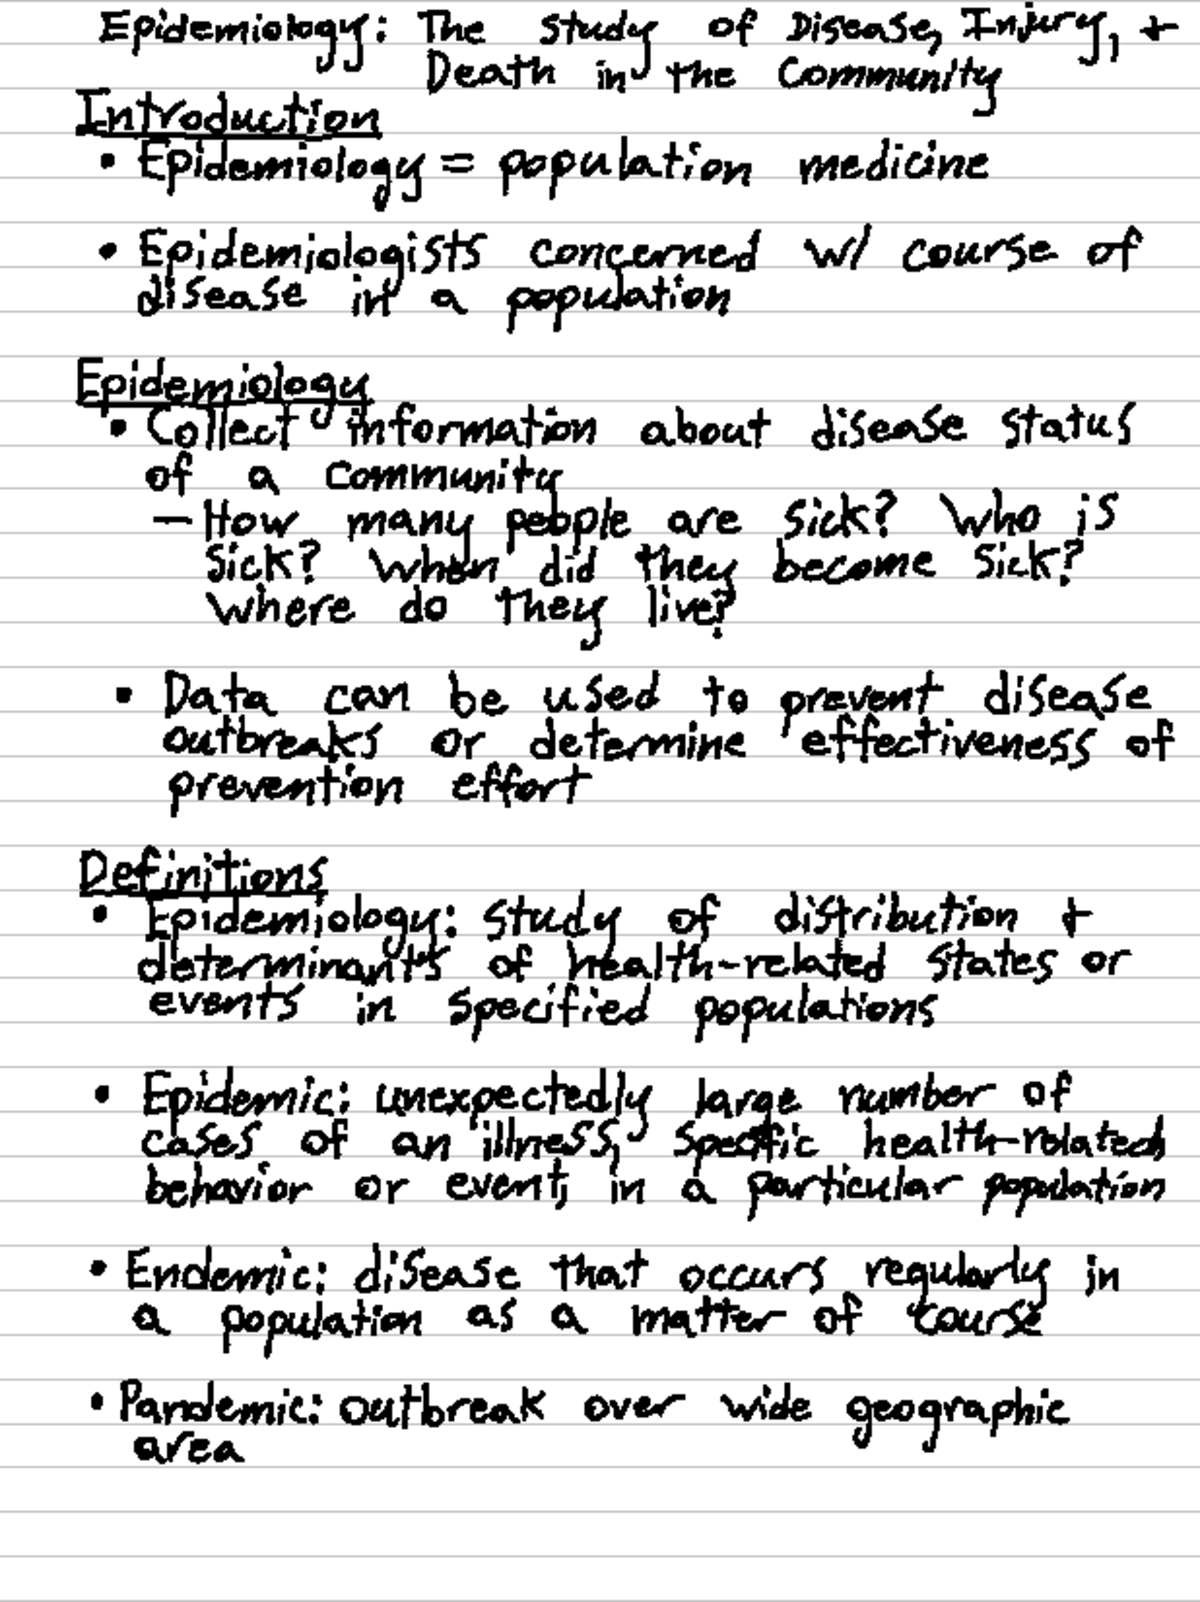 Epidemiology: The Study of Disease, Injury, +
Death in the Community
Introduction
• Epidemiology = population medicine
• Epidemiologists concerned w/ course of
disease in a population
Epidemiology
• Collect information about disease status
of a community
– How many people are sick? Who is
sick? When did they become sick?
Where do they live?
• Data can be used to prevent disease
outbreaks or determine effectiveness of
prevention effort
Definitions
• Epidemiology: study of distribution +
determinants of health-related states or
events in specified populations
• Epidemic: unexpectedly large number of
cases of an illness, specific health-related
behavior or event, in a particular population
• Endemic: disease that occurs regularly in
a population as a matter of course
• Pandemic: outbreak over wide geographic
area